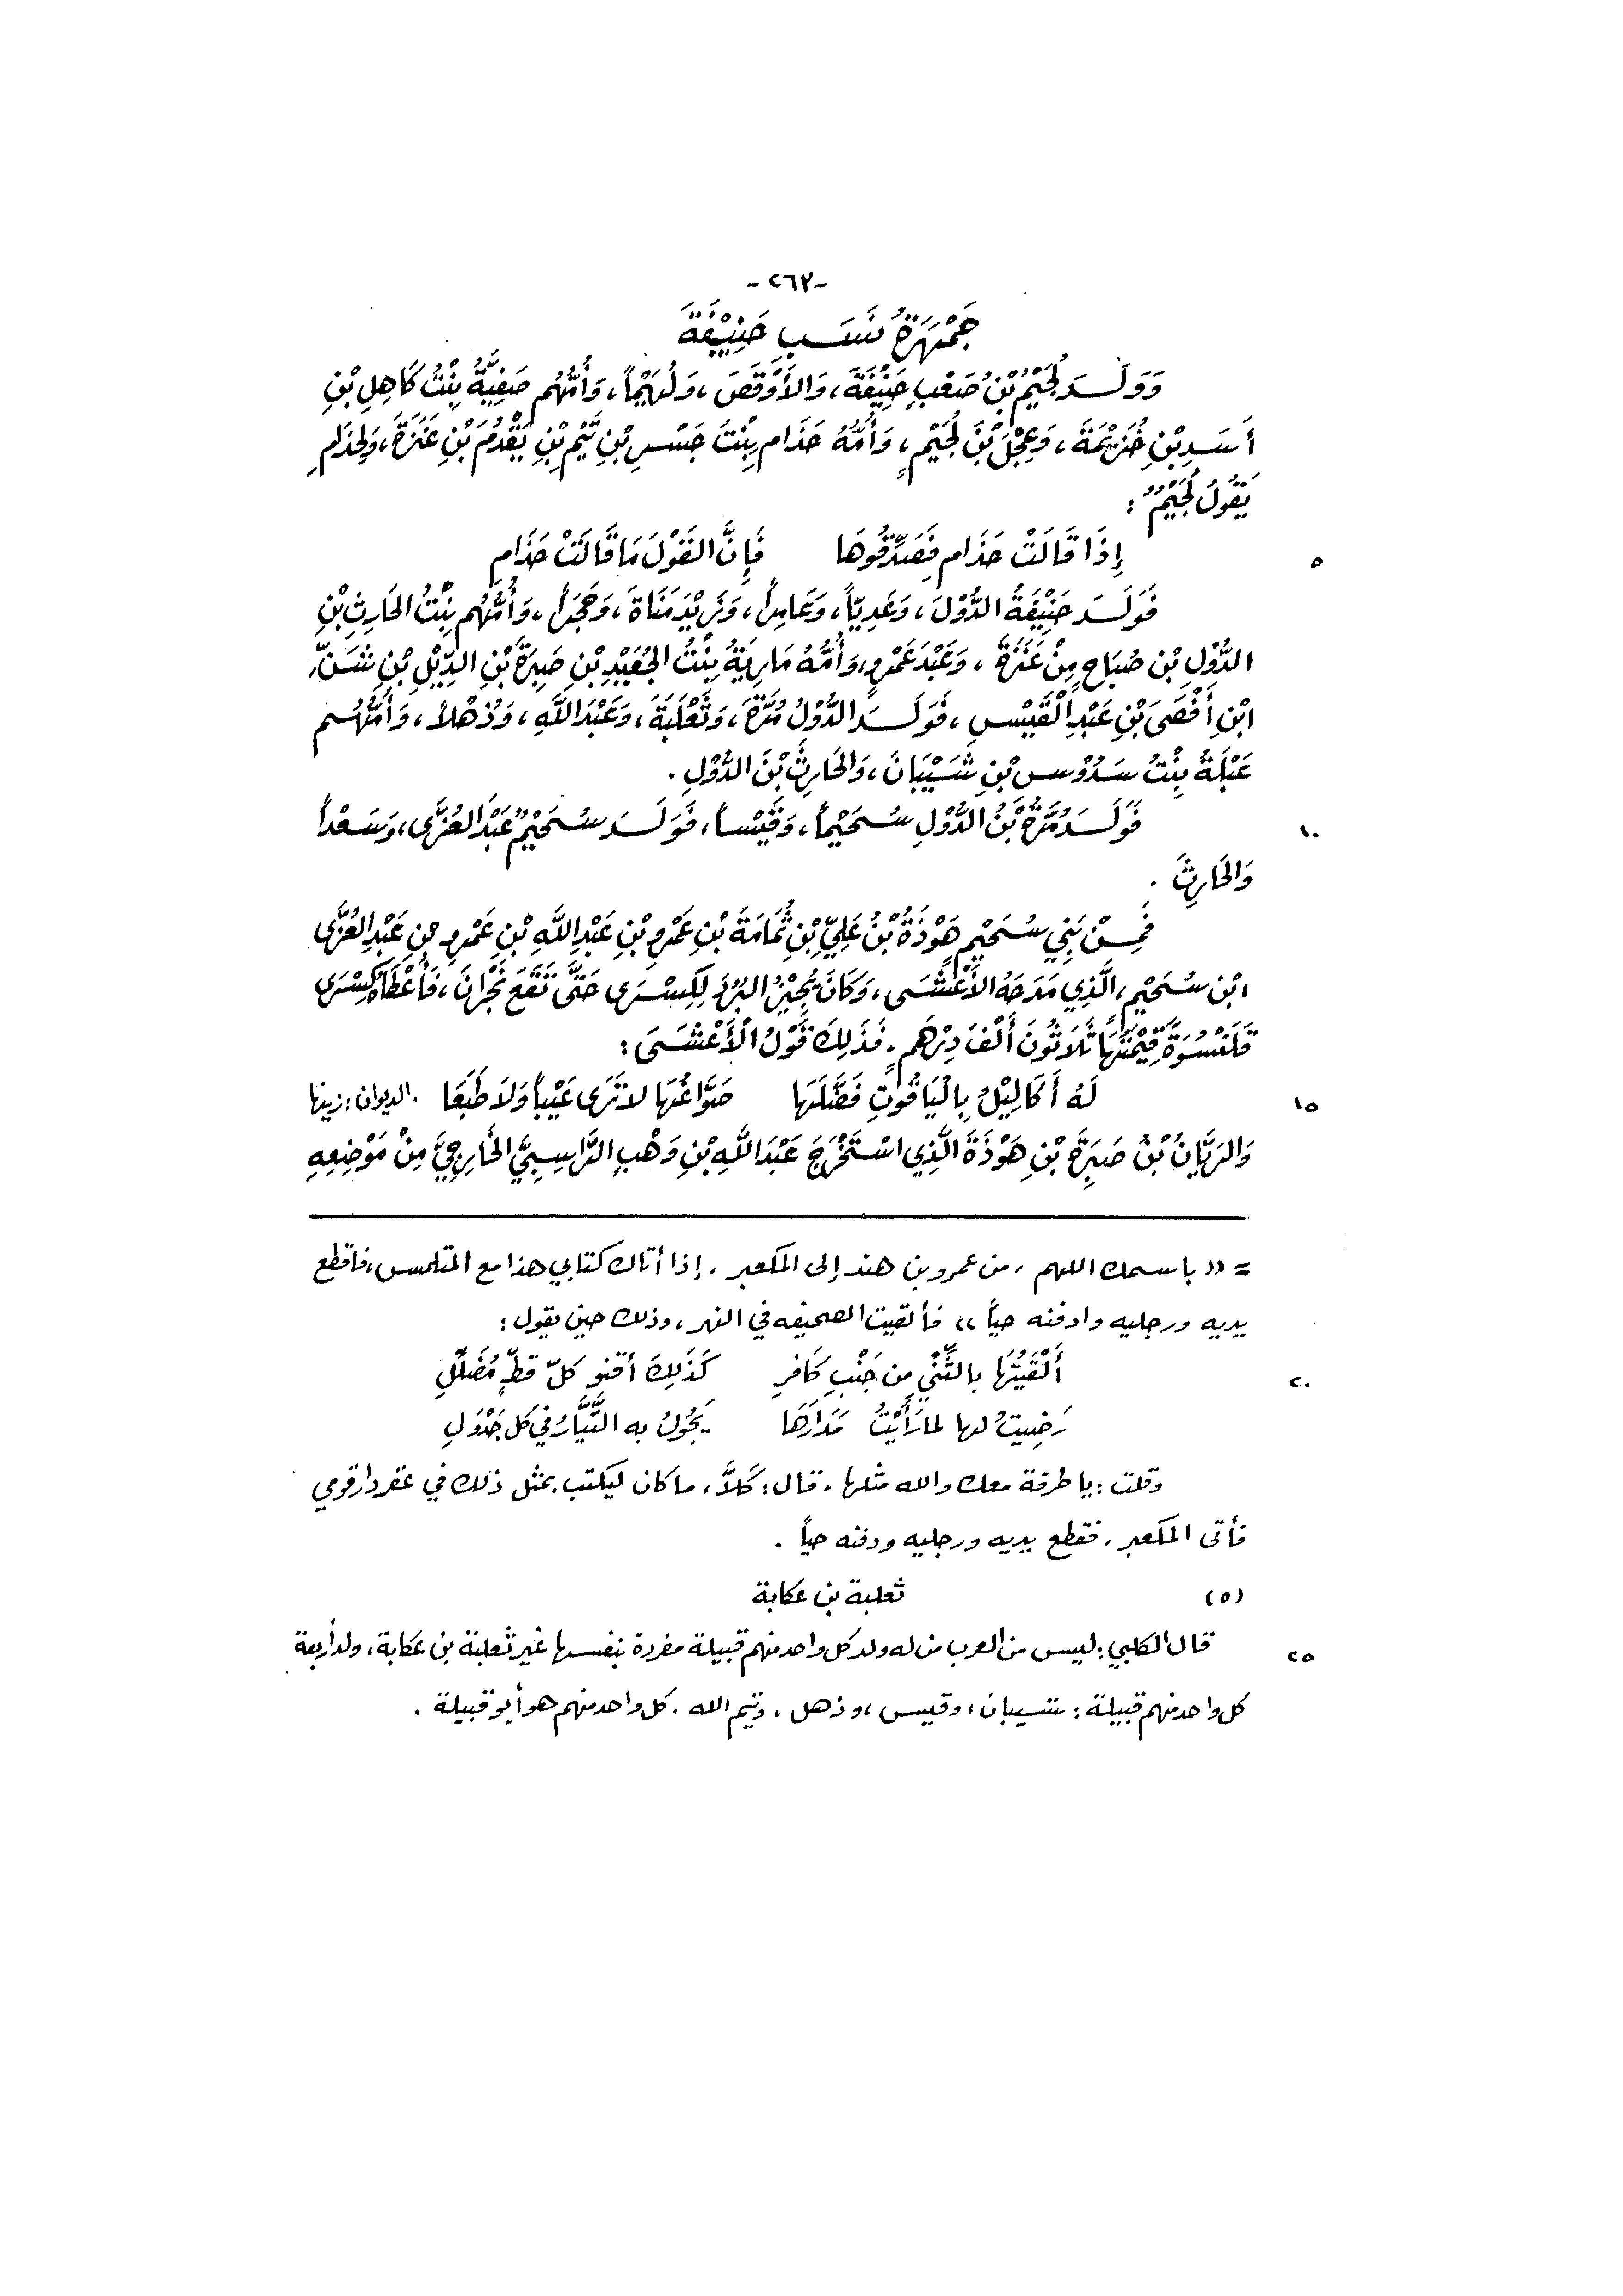 -٢٦٢-
جَمْهَرَةُ نَسَبِ حَنِيْفَةَ
وَوَلَدَ لُجَيْمُ بْنُ صَعْبٍ حَنِيْفَةَ، وَالأَوْقَصَ، وَلُهَيْمَاً، وَأُمُّهُم صَفِيَّةُ بِنْتُ كَاهِلِ بْنِ
أَسَدِ بْنِ خُزَيْمَةَ، وَعِجْلَ بْنَ لُجَيْمٍ، وَأُمُّهُ حَذَامِ بِنْتَ جَسْرِ بْنِ تَيْمِ بْنِ يَقْدُمَ بْنِ عَنَزَةَ، وَلِحَذَامِ
يَقُولُ لُجَيْمٌ:
إِذَا قَالَتْ حَذَامِ فَصَدِّقُوهَا فَإِنَّ القَوْلَ مَا قَالَتْ حَذَامِ
٥
فَوَلَدَ حَنِيْفَةُ الدُّوْلَ، وَعَدِيّاً، وَعَامِراً، وَزَيْدَ مَنَاةَ، وَحُجْراً، وَأُمُّهُم بِنْتُ الحَارِثِ بْنِ
الدُّوْلِ بْنِ صُبَاحٍ مِنْ عَنَزَةَ، وَعَبْدَ عَمْرٍو، وَأُمُّهُ مَارِيَةُ بِنْتُ الجُعَيْدِ بْنِ صَبِرَةَ بْنِ الدِّيْلِ بْنِ شَنِّ
ابْنِ أَفْصَى بْنِ عَبْدِ الْقَيْسِ، فَوَلَدَ الدُّوْلُ مُرَّةَ، وَثَعْلَبَةَ، وَعَبْدَ اللَّهِ، وَذُهْلاً، وَأُمُّهُم
عَبْلَةُ بِنْتُ سَدُوْسِ بْنِ شَيْبَانَ، وَالحَارِثَ بْنَ الدُّوْلِ.
فَوَلَدَ مُرَّةُ بْنُ الدُّوْلِ سُحَيْماً، وَقَيْساً، فَوَلَدَ سُحَيْمٌ عَبْدَ العُزَّى، وَسَعْداً
١٠
وَالحَارِثَ.
فَمِنْ بَنِي سُحَيْمٍ هَوْذَةُ بْنُ عَلِيِّ بْنِ ثُمَامَةَ بْنِ عَمْرِو بْنِ عَبْدِ اللَّهِ بْنِ عَمْرِو بْنِ عَبْدِ العُزَّى
ابْنِ سُحَيْمٍ، الَّذِي مَدَحَهُ الأَعْشَى، وَكَانَ يُجِيْزُ البُرُدَ لِكِسْرَى حَتَّى تَقَعَ نَجْرَانَ، فَأَعْطَاهُ كِسْرَى
قَلَنْسُوَةً قِيْمَتُهَا ثَلَاثُونَ أَلْفَ دِرْهَمٍ. فَذَلِكَ قَوْلُ الْأَعْشَى:
لَهُ أَكَالِيْلُ بِالْيَاقُوتِ فَصَّلَهَا صَوَّاغُهَا لا تَرَى عَيْباً وَلاَ طَبَعَا . الديوان: زينها
١٥
وَالرَيَّانُ بْنُ صَبِرَةَ بْنِ هَوْذَةَ الَّذِي اسْتَخْرَجَ عَبْدَ اللَّهِ بْنِ وَهْبٍ الرَّاسِبِيَّ الخَارِجِيَّ مِنْ مَوْضِعِهِ
= «باسمك اللهم، من عمرو بن هند إلى المكعبر. إذا أتاك كتابي هذا مع المتلمس، فاقطع
يديه ورجليه وادفنه حياً» فألقيت الصحيفه في النهر، وذلك حين يقول:
أَلْقَيْتُهَا بالثِّنْيِ من جَنْبِ كَافرٍ كَذَلِكَ أقنو كلّ قطٍّ مُضَلِّلِ
٢٠
رَضِيتُ لها لما رَأَيْتُ مَدَارَهَا يَجُولُ به التَّيَّارُ في كل جَدْوَلِ
وقلت: يا طرفة معك والله مثلها، قال: كَلاَّ، ما كان ليكتب بمثل ذلك في عقر دار قومي
فأتى المكعبر، فقطع يديه ورجليه ودفنه حياً.
(٥) ثعلبة بن عكابة
قال الكلبي: ليس من العرب من له ولد كل واحد منهم قبيلة مفردة بنفسها غير ثعلبة بن عكابة، ولد أربعة
٢٥
كل واحد منهم قبيلة: شيبان، وقيس، وذهل، وتيم الله. كل واحد منهم هو أبو قبيلة.